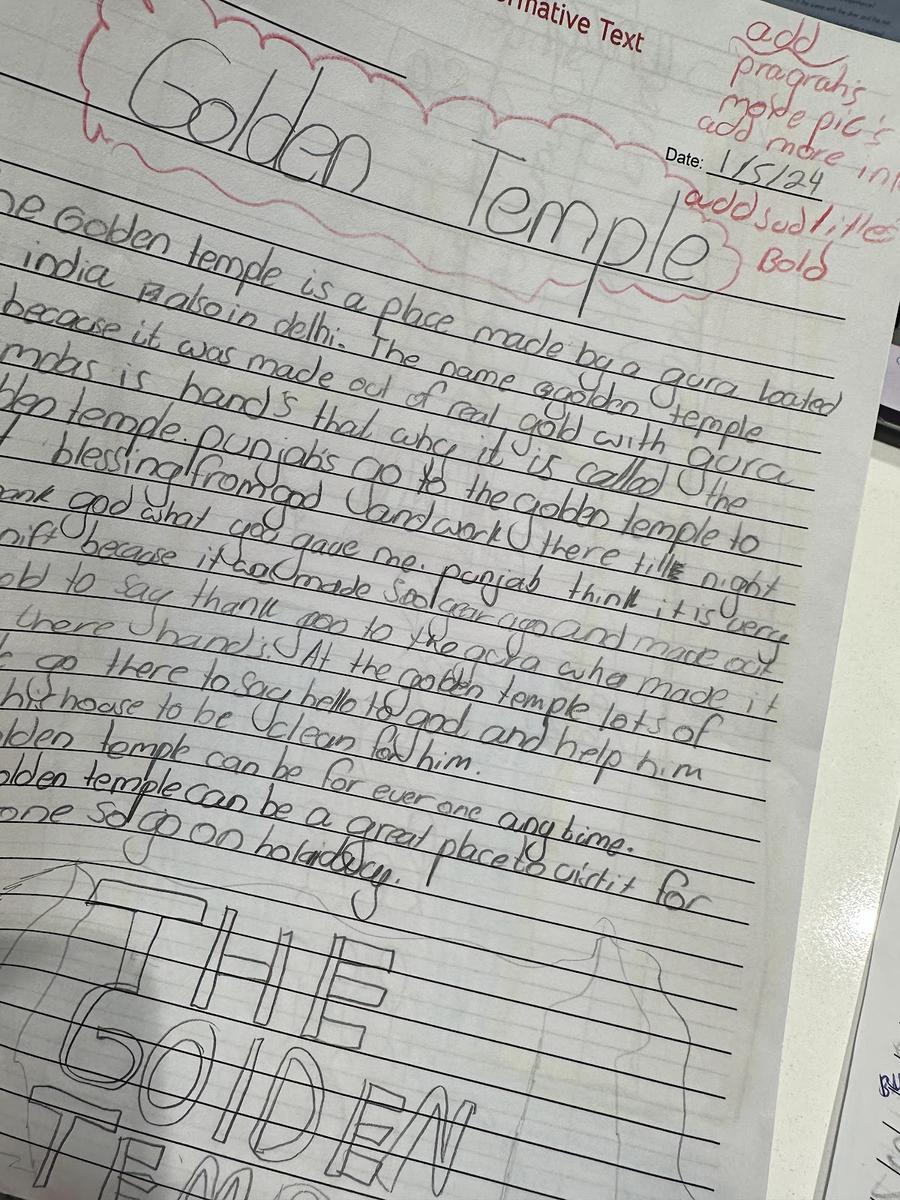 rmative Text
add
pragrahs
more pic's
add more in
Date: 1/5/24
add sudtitles
Bold
Golden Temple
he Golden temple is a place made by a gura loated
india also in delhi. The name golden temple
because it was made out of real gold with gura
mdas is hands that why it is called the
lden temple. punjabs go to the golden temple to
blessing from god and work there till night
ank god what you gave me. punjab think it is very
because it made year ago and made out
old to say thank you to the gura who made it
there hands. At the golden temple lots of
go there to say hello to god and help him
house to be clean for him.
olden temple can be for everone anytime.
olden temple can be a great place to visit for
one so go on holiday.
THE
GOlDEN
TEMP